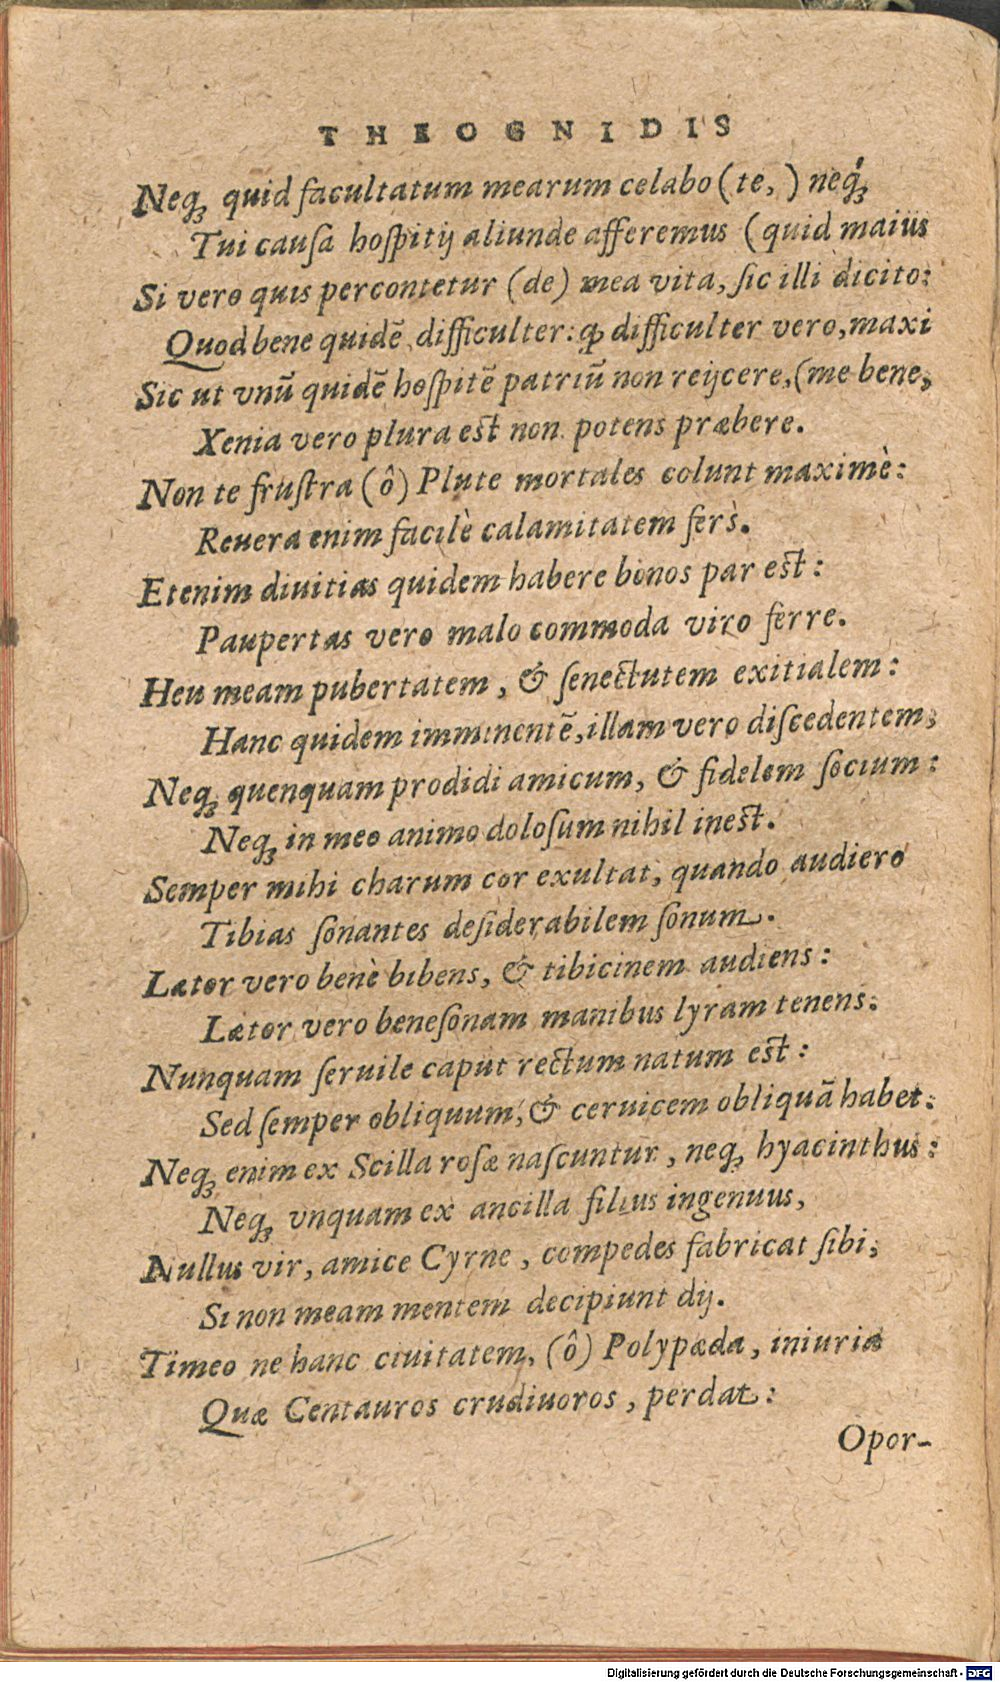 THEOGNIDIS
Neq; quid facultatum mearum celabo (te, ) neq́;
Tui cauſa hoſpitij aliunde afferemus (quid maius
Si vero quis percontetur (de) mea vita, ſic illi dicito:
Quod bene quidē difficulter: ꝙ difficulter vero, maxi
Sic ut vnū quidē hoſpitē patriū non reijcere, (me bene,
Xenia vero plura eſt non potens præbere.
Non te fruſtra (ô) Plute mortales colunt maximè:
Reuera enim facilè calamitatem fers̀.
Etenim diuitias quidem habere bonos par eſt:
Paupertas vero malo commoda viro ferre.
Heu meam pubertatem, & ſenectutem exitialem:
Hanc quidem imminentē, illam vero diſcedentem,
Neq; quenquam prodidi amicum, & fidelem ſocium:
Neq; in meo animo doloſum nihil ineſt.
Semper mihi charum cor exultat, quando audiero
Tibias ſonantes deſiderabilem ſonum.
Lætor vero benè bibens, & tibicinem audiens:
Lætor vero beneſonam manibus lyram tenens:
Nunquam ſeruile caput rectum natum eſt:
Sed ſemper obliquum, & ceruicem obliquā habet:
Neq; enim ex Scilla roſæ naſcuntur, neq; hyacinthus:
Neq; vnquam ex ancilla filius ingenuus,
Nullus vir, amice Cyrne, compedes fabricat ſibi,
Si non meam mentem decipiunt dij.
Timeo ne hanc ciuitatem, (ô) Polypæda, iniuria
Quæ Centauros crudiuoros, perdat:
Opor-
Digitalisierung gefördert durch die Deutsche Forschungsgemeinschaft - DFG